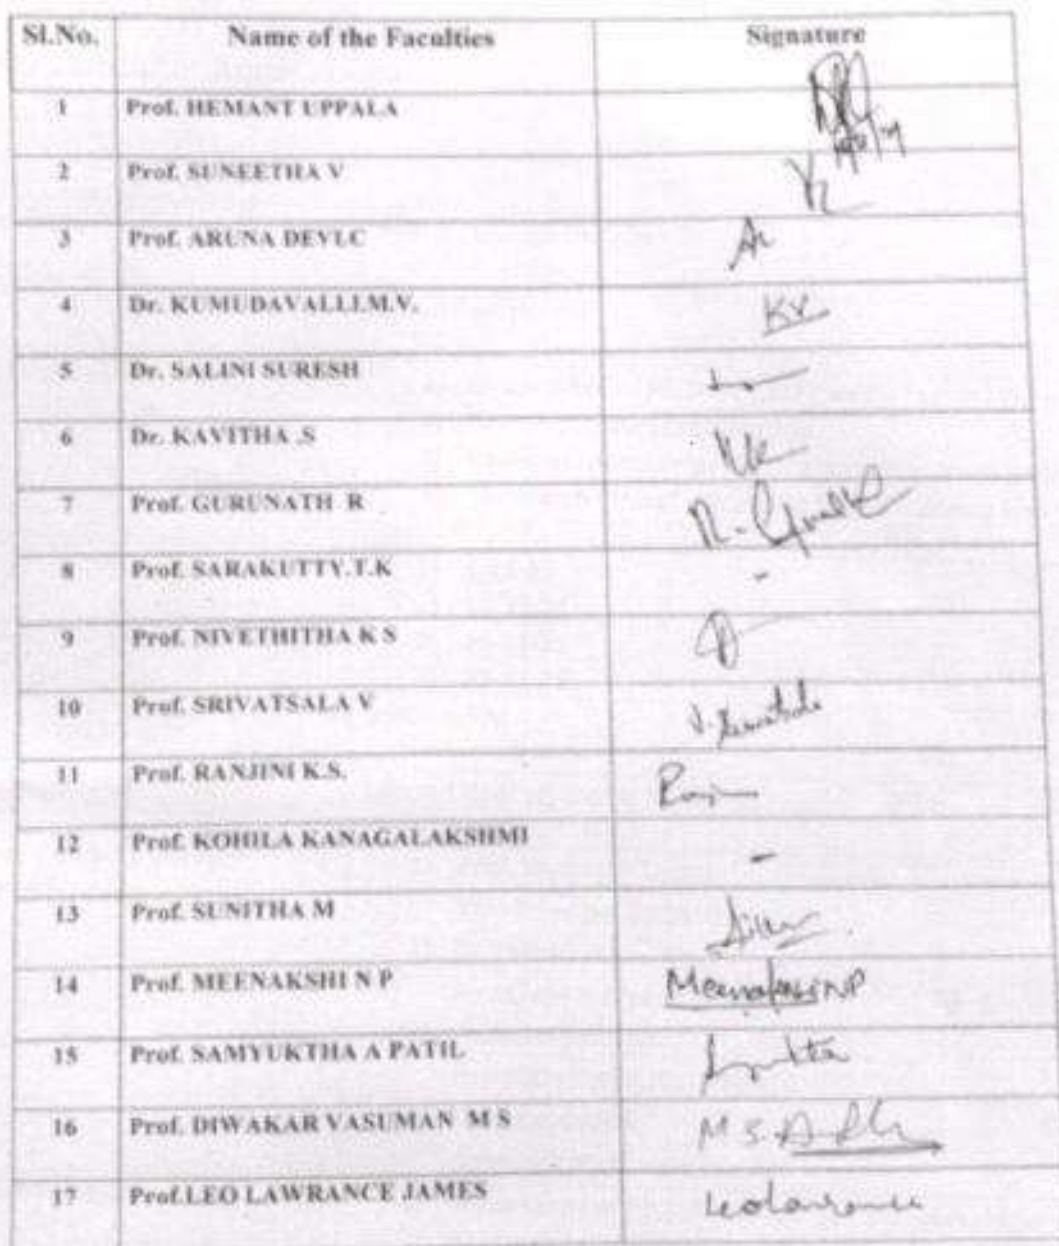 Sl.No. Name of the Faculties Signature
1 Prof. HEMANT UPPALA
2 Prof. SUNEETHA V
3 Prof. ARUNA DEVI.C
4 Dr. KUMUDAVALLI.M.V. KV
5 Dr. SALINI SURESH
6 Dr. KAVITHA .S
7 Prof. GURUNATH R
8 Prof. SARAKUTTY.T.K -
9 Prof. NIVETHITHA K S
10 Prof. SRIVATSALA V
11 Prof. RANJINI K.S.
12 Prof. KOHILA KANAGALAKSHMI -
13 Prof. SUNITHA M
14 Prof. MEENAKSHI N P Meenakshi NP
15 Prof. SAMYUKTHA A PATIL
16 Prof. DIWAKAR VASUMAN M S M S
17 Prof.LEO LAWRANCE JAMES Leolawrance